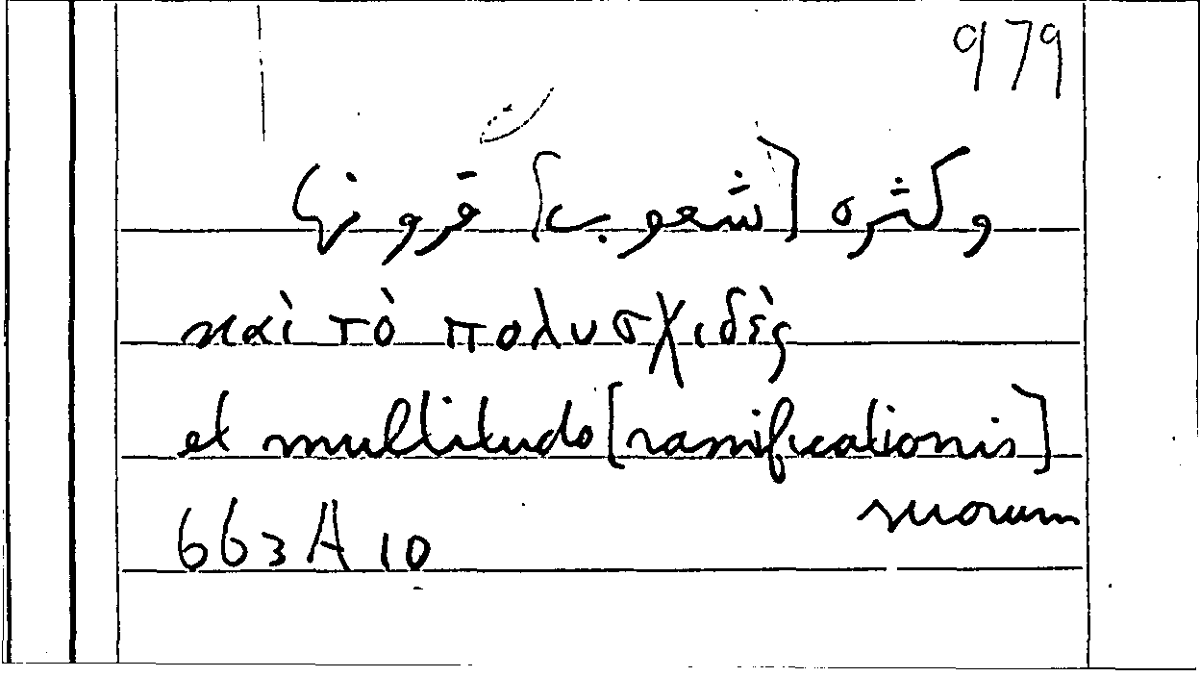 979
وكثره [شعوب] قرونها
καὶ τὸ πολυσχιδὲς
et multitudo [ramificationis]
suorum
663A10